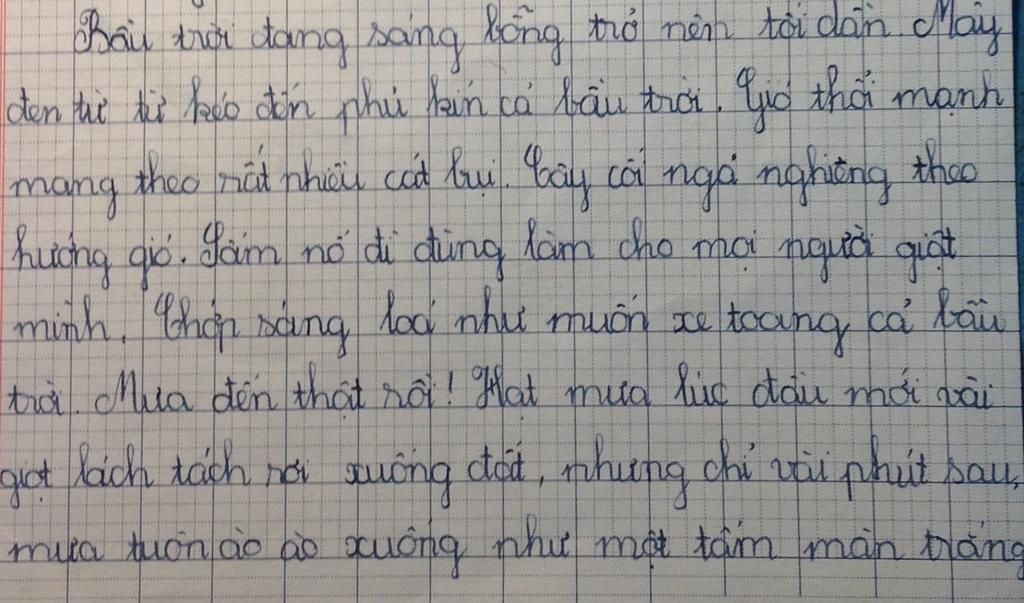 Bầu trời đang sáng bỗng trở nên tối dần. Mây
đen từ từ kéo đến phủ kín cả bầu trời. Gió thổi mạnh
mang theo rất nhiều cát bụi. Cây cối ngả nghiêng theo
hướng gió. Sấm nổ đì đùng làm cho mọi người giật
mình. Chớp sáng loá như muốn xe toang cả bầu
trời. Mưa đến thật rồi! Hạt mưa lúc đầu mới vài
giọt lách tách rơi xuống đất, nhưng chỉ vài phút sau,
mưa tuôn ào ào xuống như một tấm màn trắng